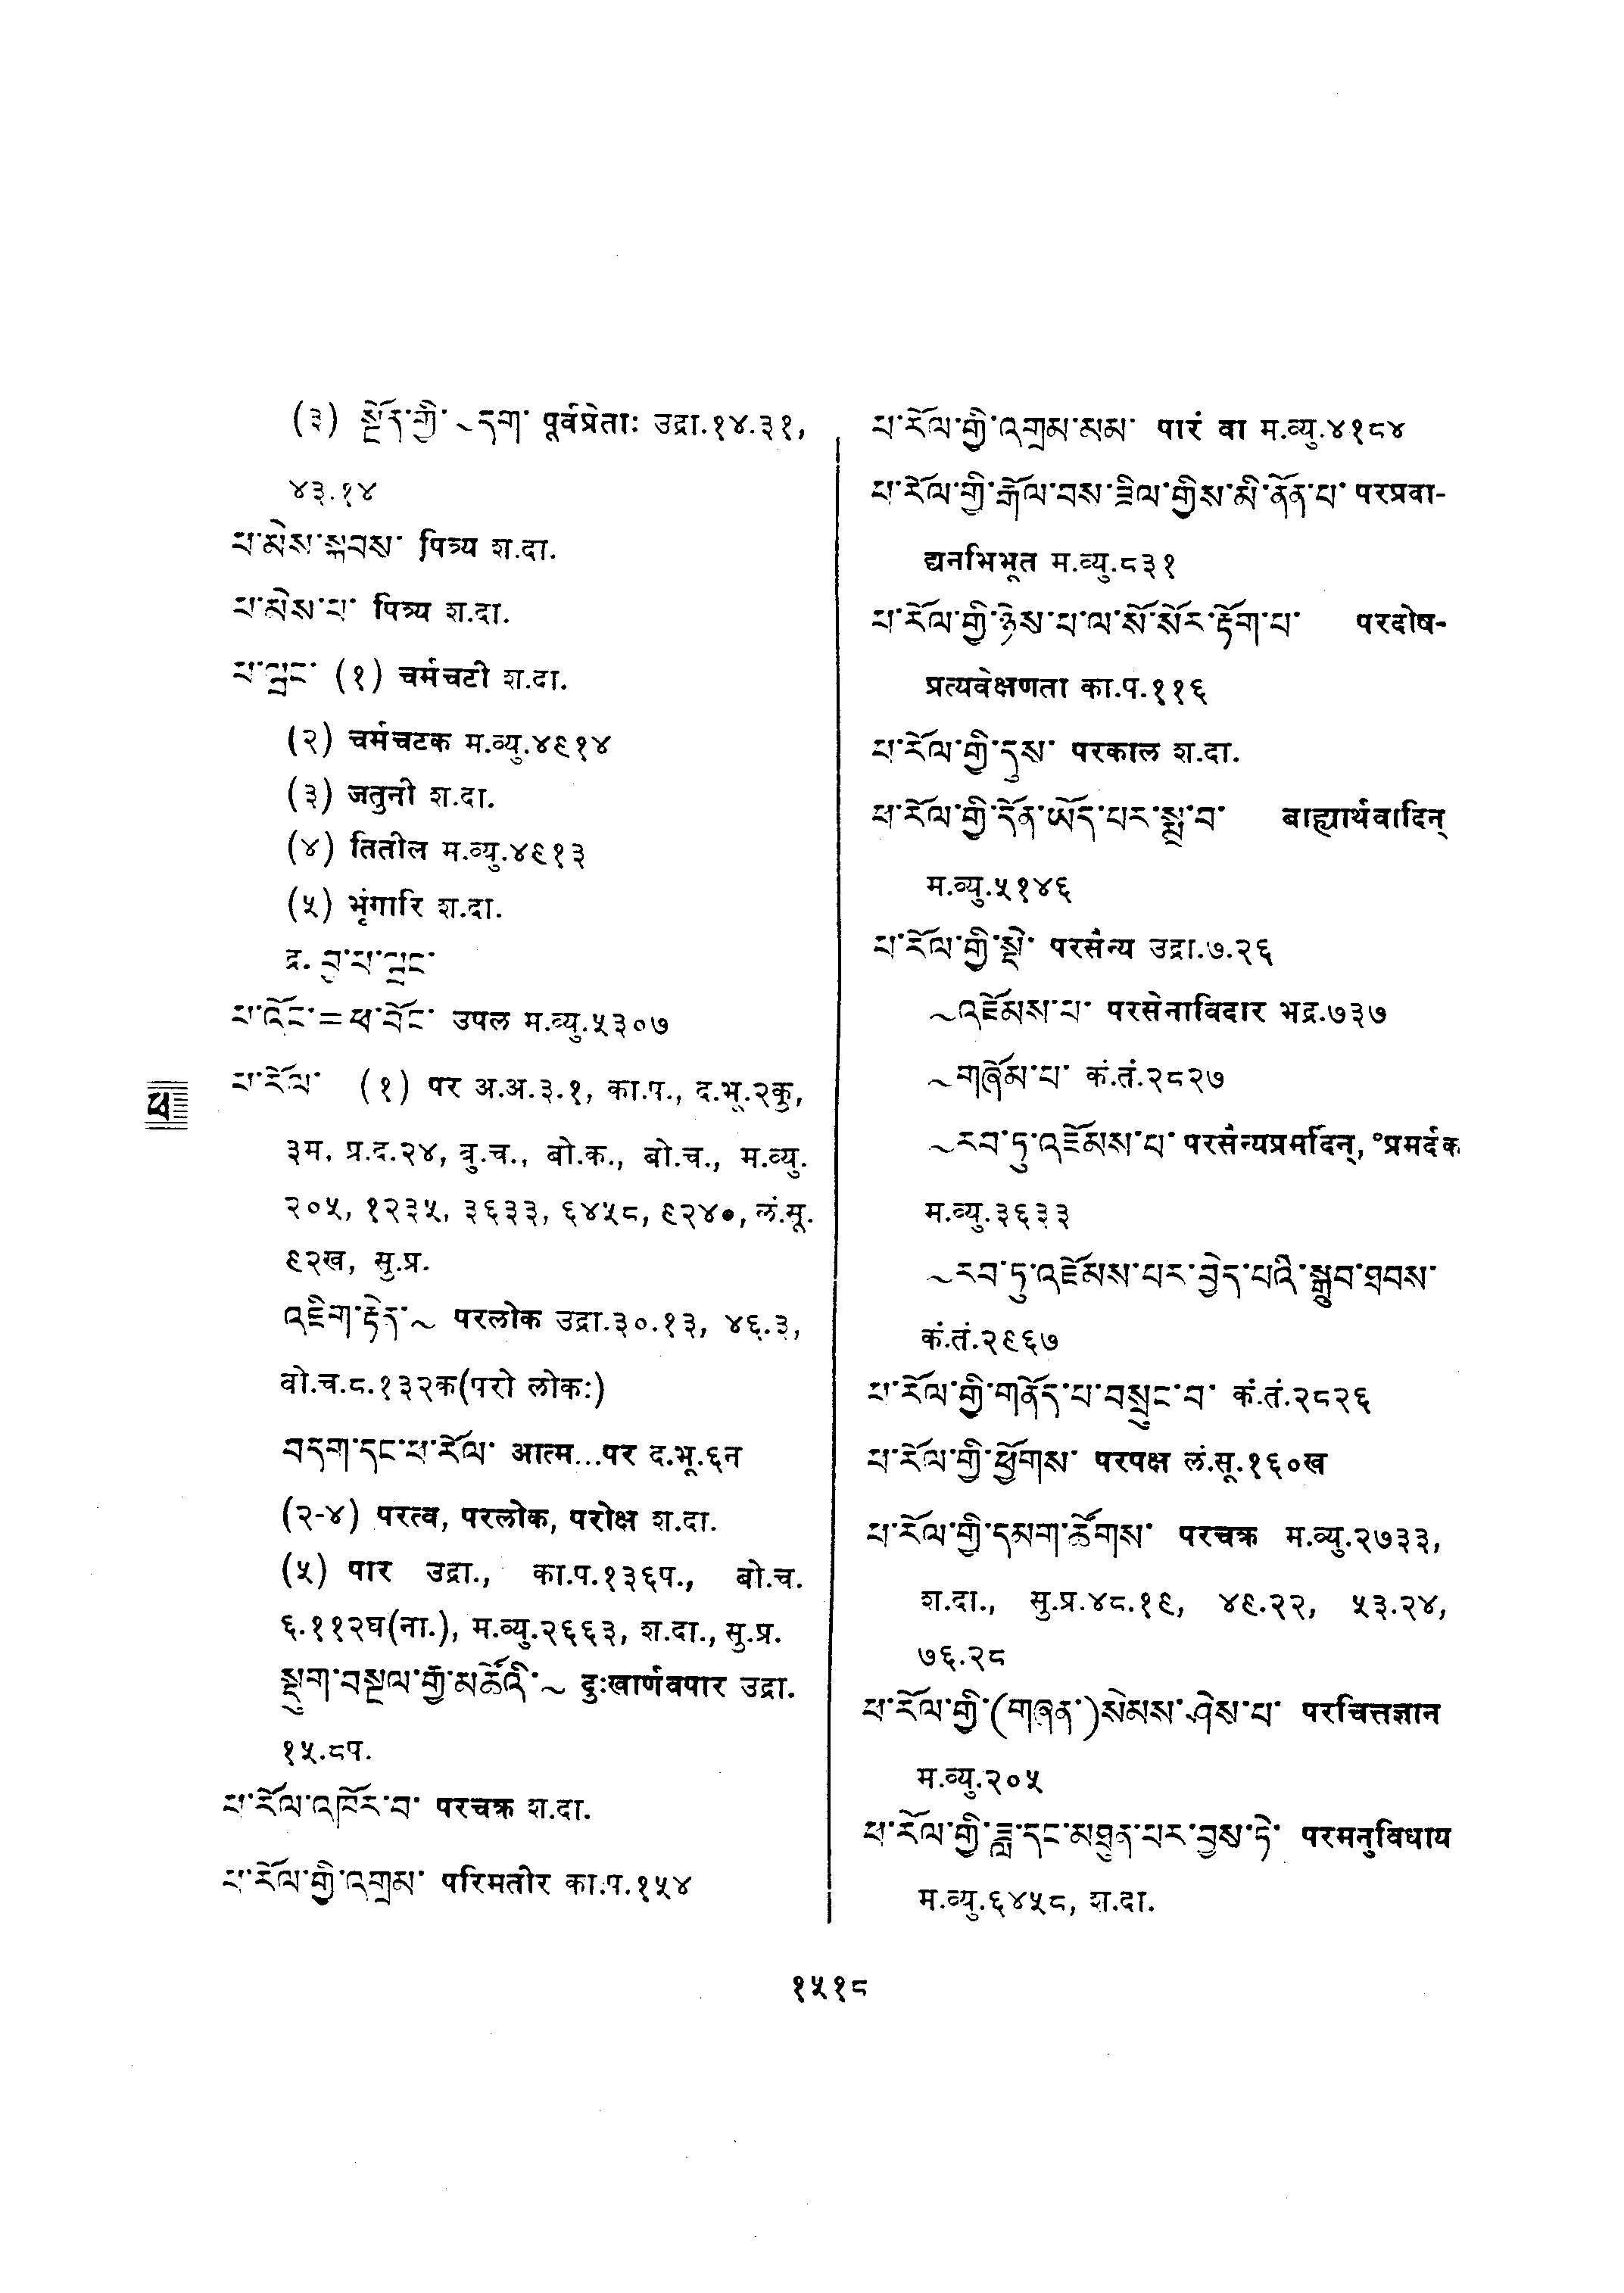 (३) སྔོན་གྱི་ ~དག་ पूर्वप्रेताः उद्रा.१४.३१,
४३.१४
ཕ་མེས་སྐབས་ पित्र्य श.दा.
ཕ་མེས་པ་ पित्र्य श.दा.
ཕ་ཝང་ (१) चर्मचटी श.दा.
(२) चर्मचटक म.व्यु.४९१४
(३) जतुनी श.दा.
(४) तितील म.व्यु.४९१३
(५) भृंगारि श.दा.
द्र. བྱ་ཕ་ཝང་
ཕ་འོང་=ཕ་བོང་ उपल म.व्यु.५३०७
ཕ་རོལ་ (१) पर अ.अ.३.१, का.प., द.भू.२कु,
ཕ
३म, प्र.द.२४, बु.च., बो.क., बो.च., म.व्यु.
२०५, १२३५, ३६३३, ६४५८, ९२४०, लं.सू.
९२ख, सु.प्र.
འཇིག་རྟེན་~ परलोक उद्रा.३०.१३, ४६.३,
बो.च.८.१३२क(परो लोकः)
བདག་དང་ཕ་རོལ་ आत्म...पर द.भू.६न
(२-४) परत्व, परलोक, परोक्ष श.दा.
(५) पार उद्रा., का.प.१३६प., बो.च.
६.११२घ(ना.), म.व्यु.२६६३, श.दा., सु.प्र.
སྡུག་བསྔལ་རྒྱ་མཚོའི་~ दुःखार्णवपार उद्रा.
१५.८प.
ཕ་རོལ་འཁོར་བ་ परचक्र श.दा.
ཕ་རོལ་གྱི་འགྲམ་ परिमतीर का.प.१५४
ཕ་རོལ་གྱི་འགྲམ་མམ་ पारं वा म.व्यु.४१८४
ཕ་རོལ་གྱི་རྒོལ་བས་ཟིལ་གྱིས་མི་ནོན་པ་ परप्रवा-
द्यनभिभूत म.व्यु.८३१
ཕ་རོལ་གྱི་ཉེས་པ་ལ་སོ་སོར་རྟོག་པ་ परदोष-
प्रत्यवेक्षणता का.प.११६
ཕ་རོལ་གྱི་དུས་ परकाल श.दा.
ཕ་རོལ་གྱི་དོན་ཡོད་པར་སྨྲ་བ་ बाह्यार्थवादिन्
म.व्यु.५१४६
ཕ་རོལ་གྱི་སྡེ་ परसैन्य उद्रा.७.२६
~འཇོམས་པ་ परसेनाविदार भद्र.७३७
~གཞོམ་པ་ कं.तं.२८२७
~རབ་ཏུ་འཇོམས་པ་ परसैन्यप्रमर्दिन्, °प्रमर्दक
म.व्यु.३६३३
~རབ་ཏུ་འཇོམས་པར་བྱེད་པའི་སྒྲུབ་ཐབས་
कं.तं.२९६७
ཕ་རོལ་གྱི་གནོད་པ་བསྲུང་བ་ कं.तं.२८२६
ཕ་རོལ་གྱི་ཕྱོགས་ परपक्ष लं.सू.१६०ख
ཕ་རོལ་གྱི་དམག་ཚོགས་ परचक्र म.व्यु.२७३३,
श.दा., सु.प्र.४८.१९, ४९.२२, ५३.२४,
७६.२८
ཕ་རོལ་གྱི་(གཞན་)སེམས་ཤེས་པ་ परचित्तज्ञान
म.व्यु.२०५
ཕ་རོལ་གྱི་ཟླ་དང་མཐུན་པར་བྱས་ཏེ་ परमनुविधाय
म.व्यु.६४५८, श.दा.
१५१८